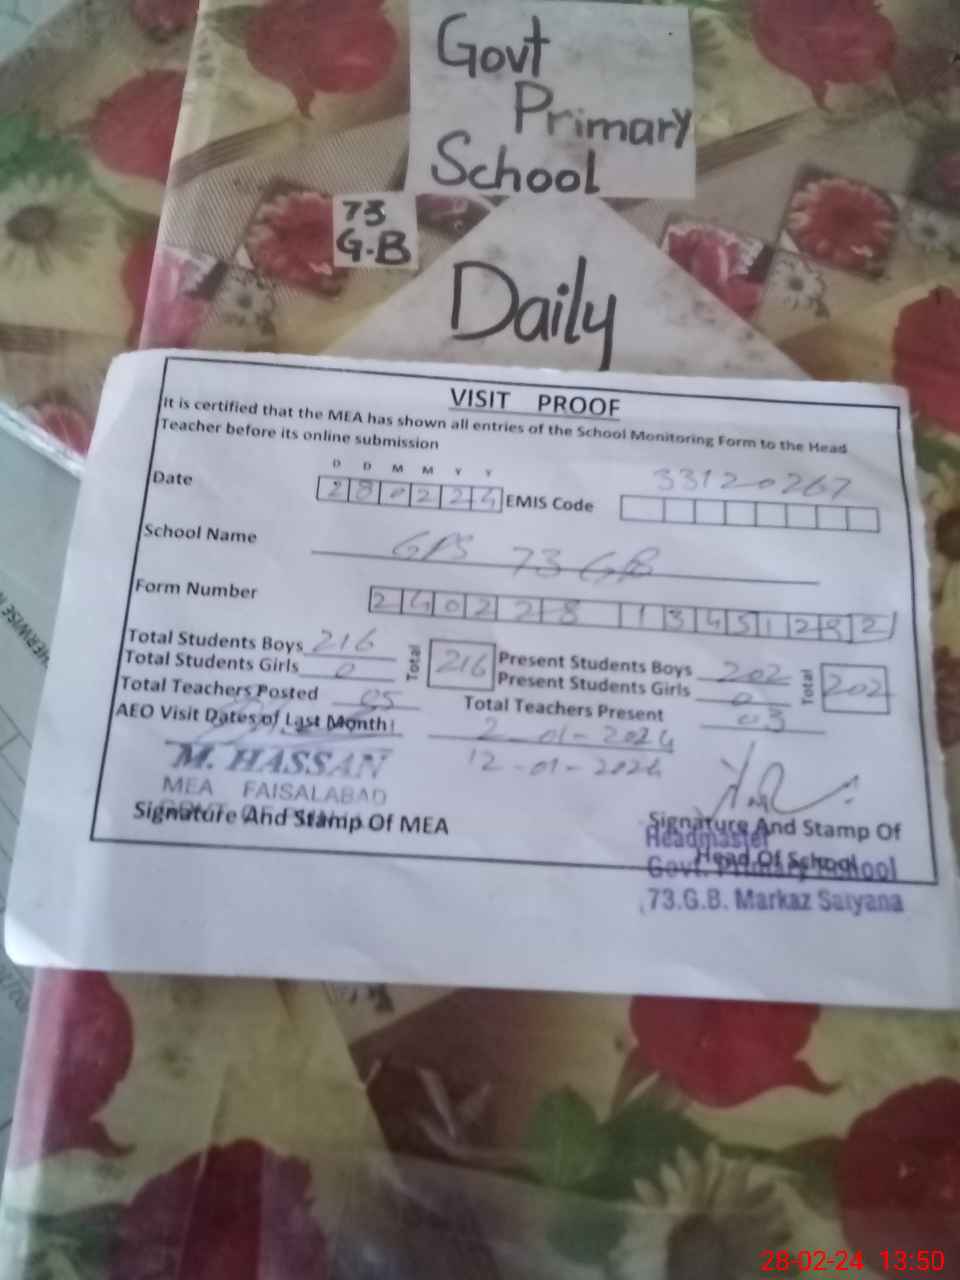 Govt
Primary
School
73
G.B
Daily
VISIT PROOF
It is certified that the MEA has shown all entries of the School Monitoring Form to the Head
Teacher before its online submission
D D M M Y Y
Date 280224 EMIS Code 33120267
School Name GPS 73 GB
Form Number 240228 13451282
Total Students Boys 216 Total 216 Present Students Boys 202 Total 202
Total Students Girls 0 Present Students Girls 0
Total Teachers Posted 05 Total Teachers Present 03
AEO Visit Dates of Last Month 2-01-2024
12-01-2024
M. HASSAN
MEA FAISALABAD
Signature And Stamp Of MEA
Signature And Stamp Of
Headmaster
Head Of School
Govt. Primary School
73.G.B. Markaz Satyana
28-02-24 13:50